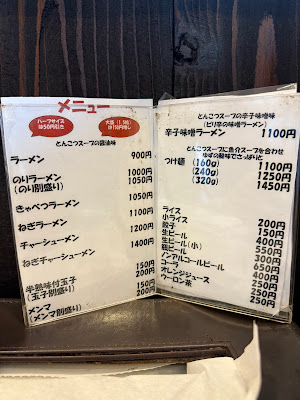 メニュー
ハーフサイズ
は50円引き
大盛(1.5粒)
は150円増し
とんこつスープの醤油味
ラーメン 900円
のりラーメン 1000円
(のり別盛り) 1050円
きゃべつラーメン 1050円
ねぎラーメン 1100円
チャーシューメン 1200円
ねぎチャーシューメン 1400円
半熟味付玉子 150円
(玉子別盛り) 200円
メンマ 150円
(メンマ別盛り) 200円
とんこつスープの辛子味噌味
(ピリ辛の味噌ラーメン)
辛子味噌ラーメン 1100円
とんこつスープに魚介スープを合わせ
ゆずの酸味でさっぱりと
つけ麺 (160g) 1100円
(240g) 1250円
(320g) 1450円
ライス 200円
小ライス 150円
餃子 400円
生ビール 550円
生ビール(小) 300円
瓶ビール 650円
ノンアルコールビール 400円
コーラ 250円
オレンジジュース 250円
ウーロン茶 250円